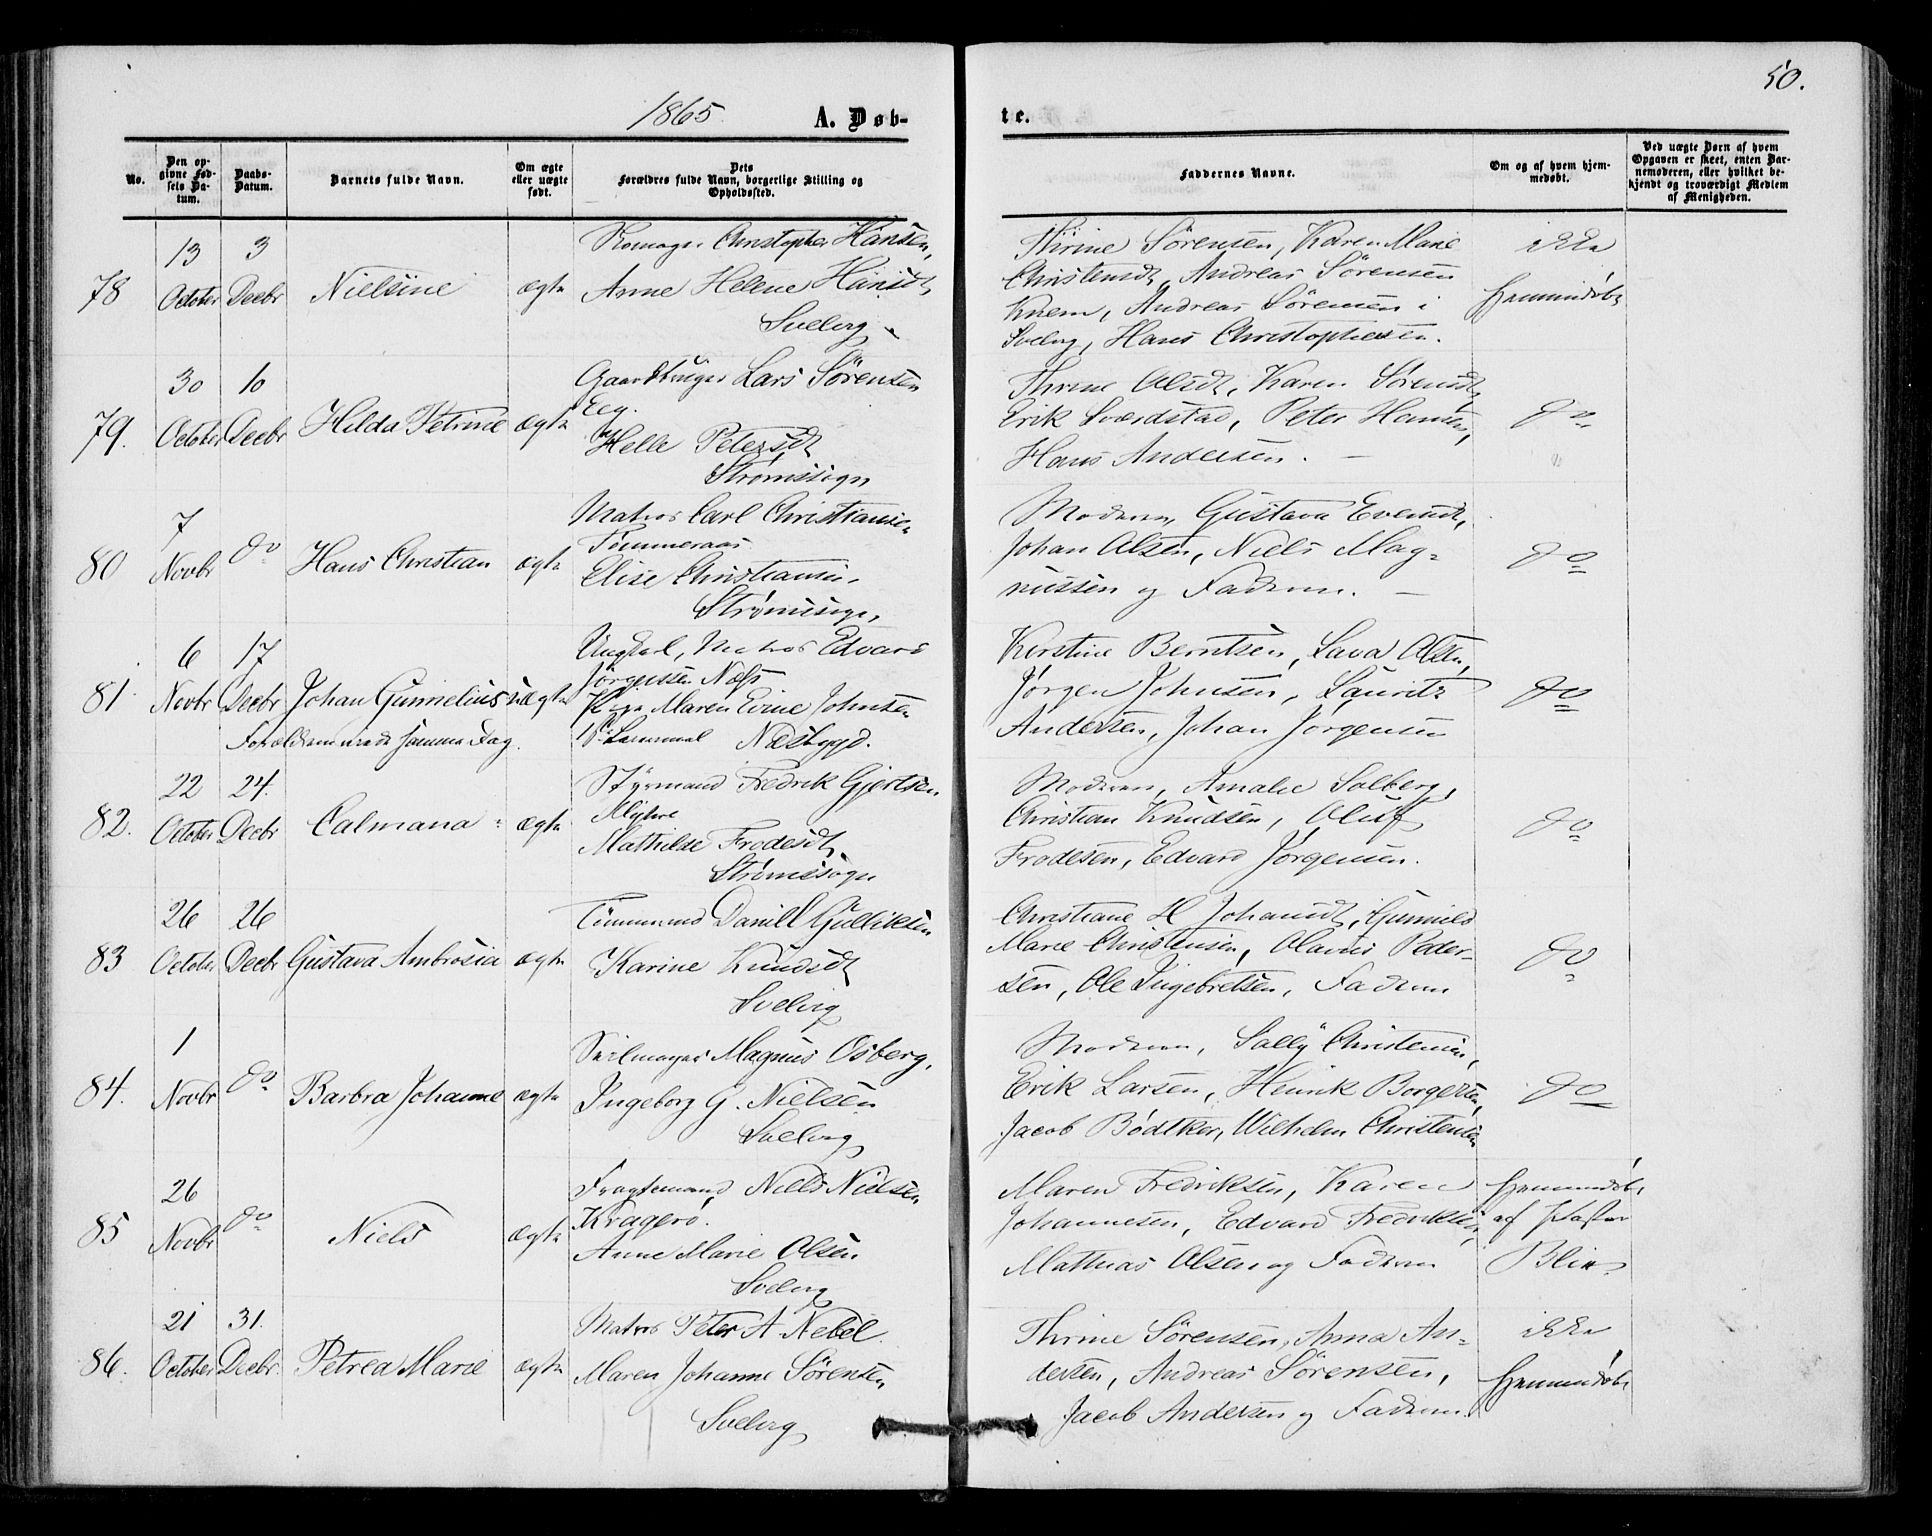 50.
1865. A. Døb- te.
No.
Den opgivne Fødsels Datum.
Daabs-Datum.
Barnets fulde Navn.
Om ægte eller uægte født.
Dets Forældres fulde Navn, borgerlige Stilling og Opholdssted.
Faddernes Navne.
Om og af hvem hjemmedøbt.
Ved uægte Børn af hvem Opgaven er skeet, enten Barnemoderen, eller hvilket bekjendt og troværdigt Medlem af Menigheden.
13 3
Christopher Hansen,
78 October Decbr Nielsine ægte Anne Helene Hansdt
Svelvig
Thrine Sørensen, Karen Marie
Christensdt, Andreas Sørensen
Knem, Andreas Sørensen i
Svelvig, Hans Christophersen.
ikke
hjemmedøbt
30 10
Gaardbruger Lars Sørensen
Eeg.
79. October Decbr Hilda Petrine ægte
Helle Petersdt
Strømssogn
Thrine Olsdt, Karen Sørensdt,
Erik Sværdstad, Peter Hansen,
Hans Andersen. —
do
7
Matros Carl Christiansen
Tømmeraas
80 Novbr do Hans Christian ægte
Elise Christiansen.
Strømssogn,
Moderen, Gustava Evensdt,
Johan Olsen, Niels Mag-
nussen og Faderen. —
do
6 17
Ungkarl, Matros Edvard
Jørgensen Næss
81. Novbr Decbr Johan Gunnelius uægte
Pige Maren Evine Johnsen
Forældrene viede samme Dag.
Næsbygd.
Kirstine Berntsen, Lava Olsen,
Jørgen Johnsen, Lauritz
Andersen, Johan Jørgensen
do
22 24.
Styrmand Fredrik Gjertsen
Myhre
82. October Decbr Calmana ægte
Mathilde Frodesdt
Strømssogn
Moderen, Amalie Solberg,
Christian Knudsen, Oluf
Frodesen, Edvard Jørgensen.
do
26 26
Tømmermand Daniel Gulliksen
83 October Decbr Gustava Ambrosia ægte
Karine Knudsdt
Svelvig
Christiane H Johansdt, Gunnild
Marie Christensen, Olaves Peder-
sen, Ole Ingebretsen, Faderen
do
1
Seilmager Magnus Osberg,
84. Novbr do Barbra Johanne ægte
Ingeborg G. Nielsen
Svelvig
Moderen, Sally Christensen,
Erik Larsen, Henrik Borgersen,
Jacob Bødtker, Wilhelm Christensen
do
26
Fragtemand Niels Nielsen
Kragerø.
85 Novbr do Niels ægte
Anne Marie Olsen
Svelvig
Maren Fredriksen, Karen
Johannesen, Edvard Fredriksen,
Mathias Olsen og Faderen
hjemmedøbt
af Pastor
Blix
21 31.
Matros Peter A. Nebel.
86. October Decbr. Petrea Marie ægte
Maren Johanne Sørensen
Svelvig
Thrine Sørensen, Anna An-
dersen, Andreas Sørensen,
Jacob Andersen og Faderen.
ikke
hjemmedøbt